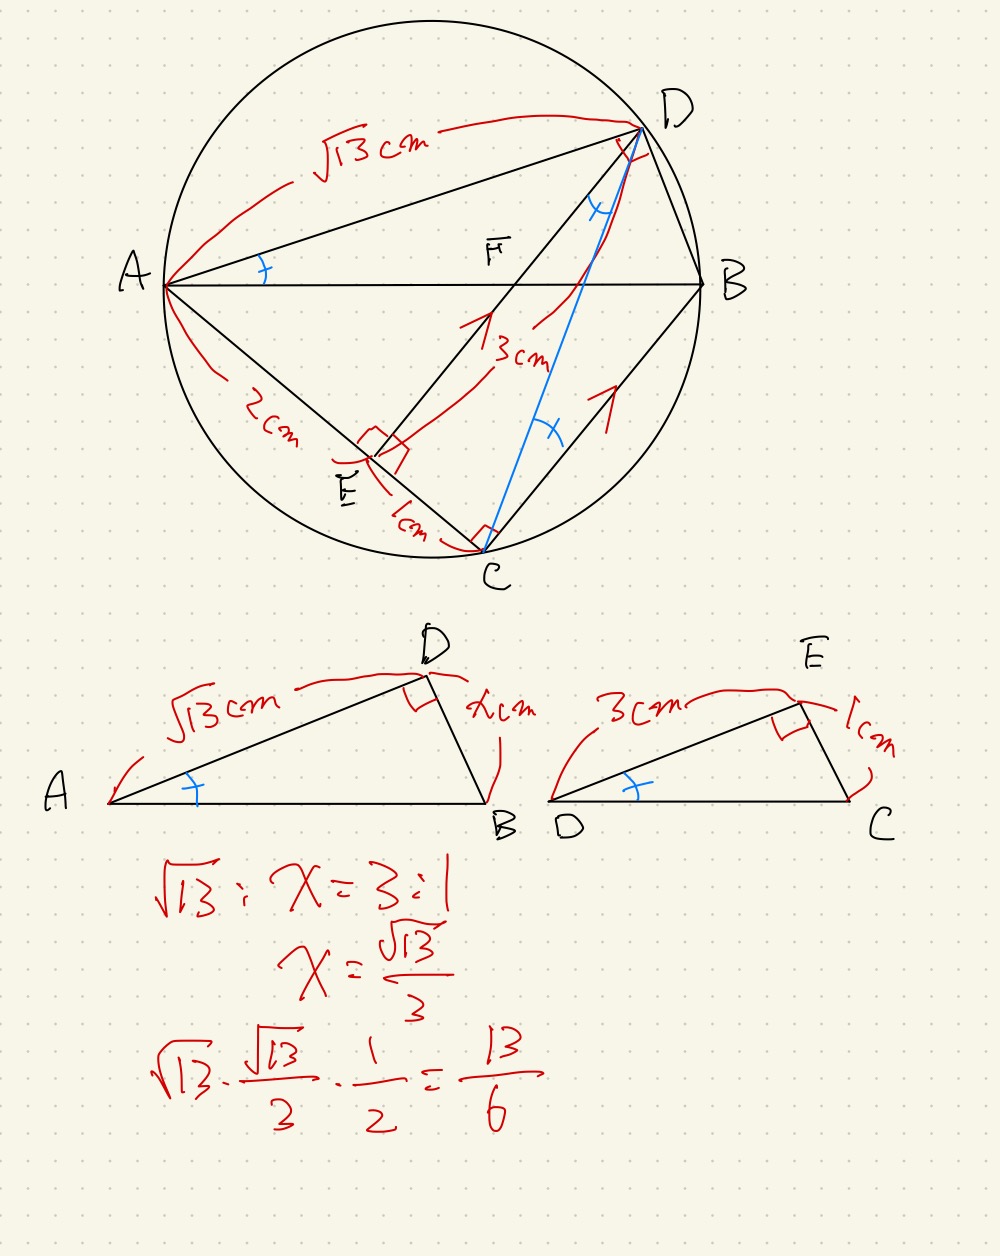 D
√13 cm
F
A
B
3cm
2cm
E
1cm
C
D
E
√13 cm
xcm
3cm
1cm
A
B
D
C
√13 : x = 3 : 1
x = √13/3
√13 · √13/3 · 1/2 = 13/6